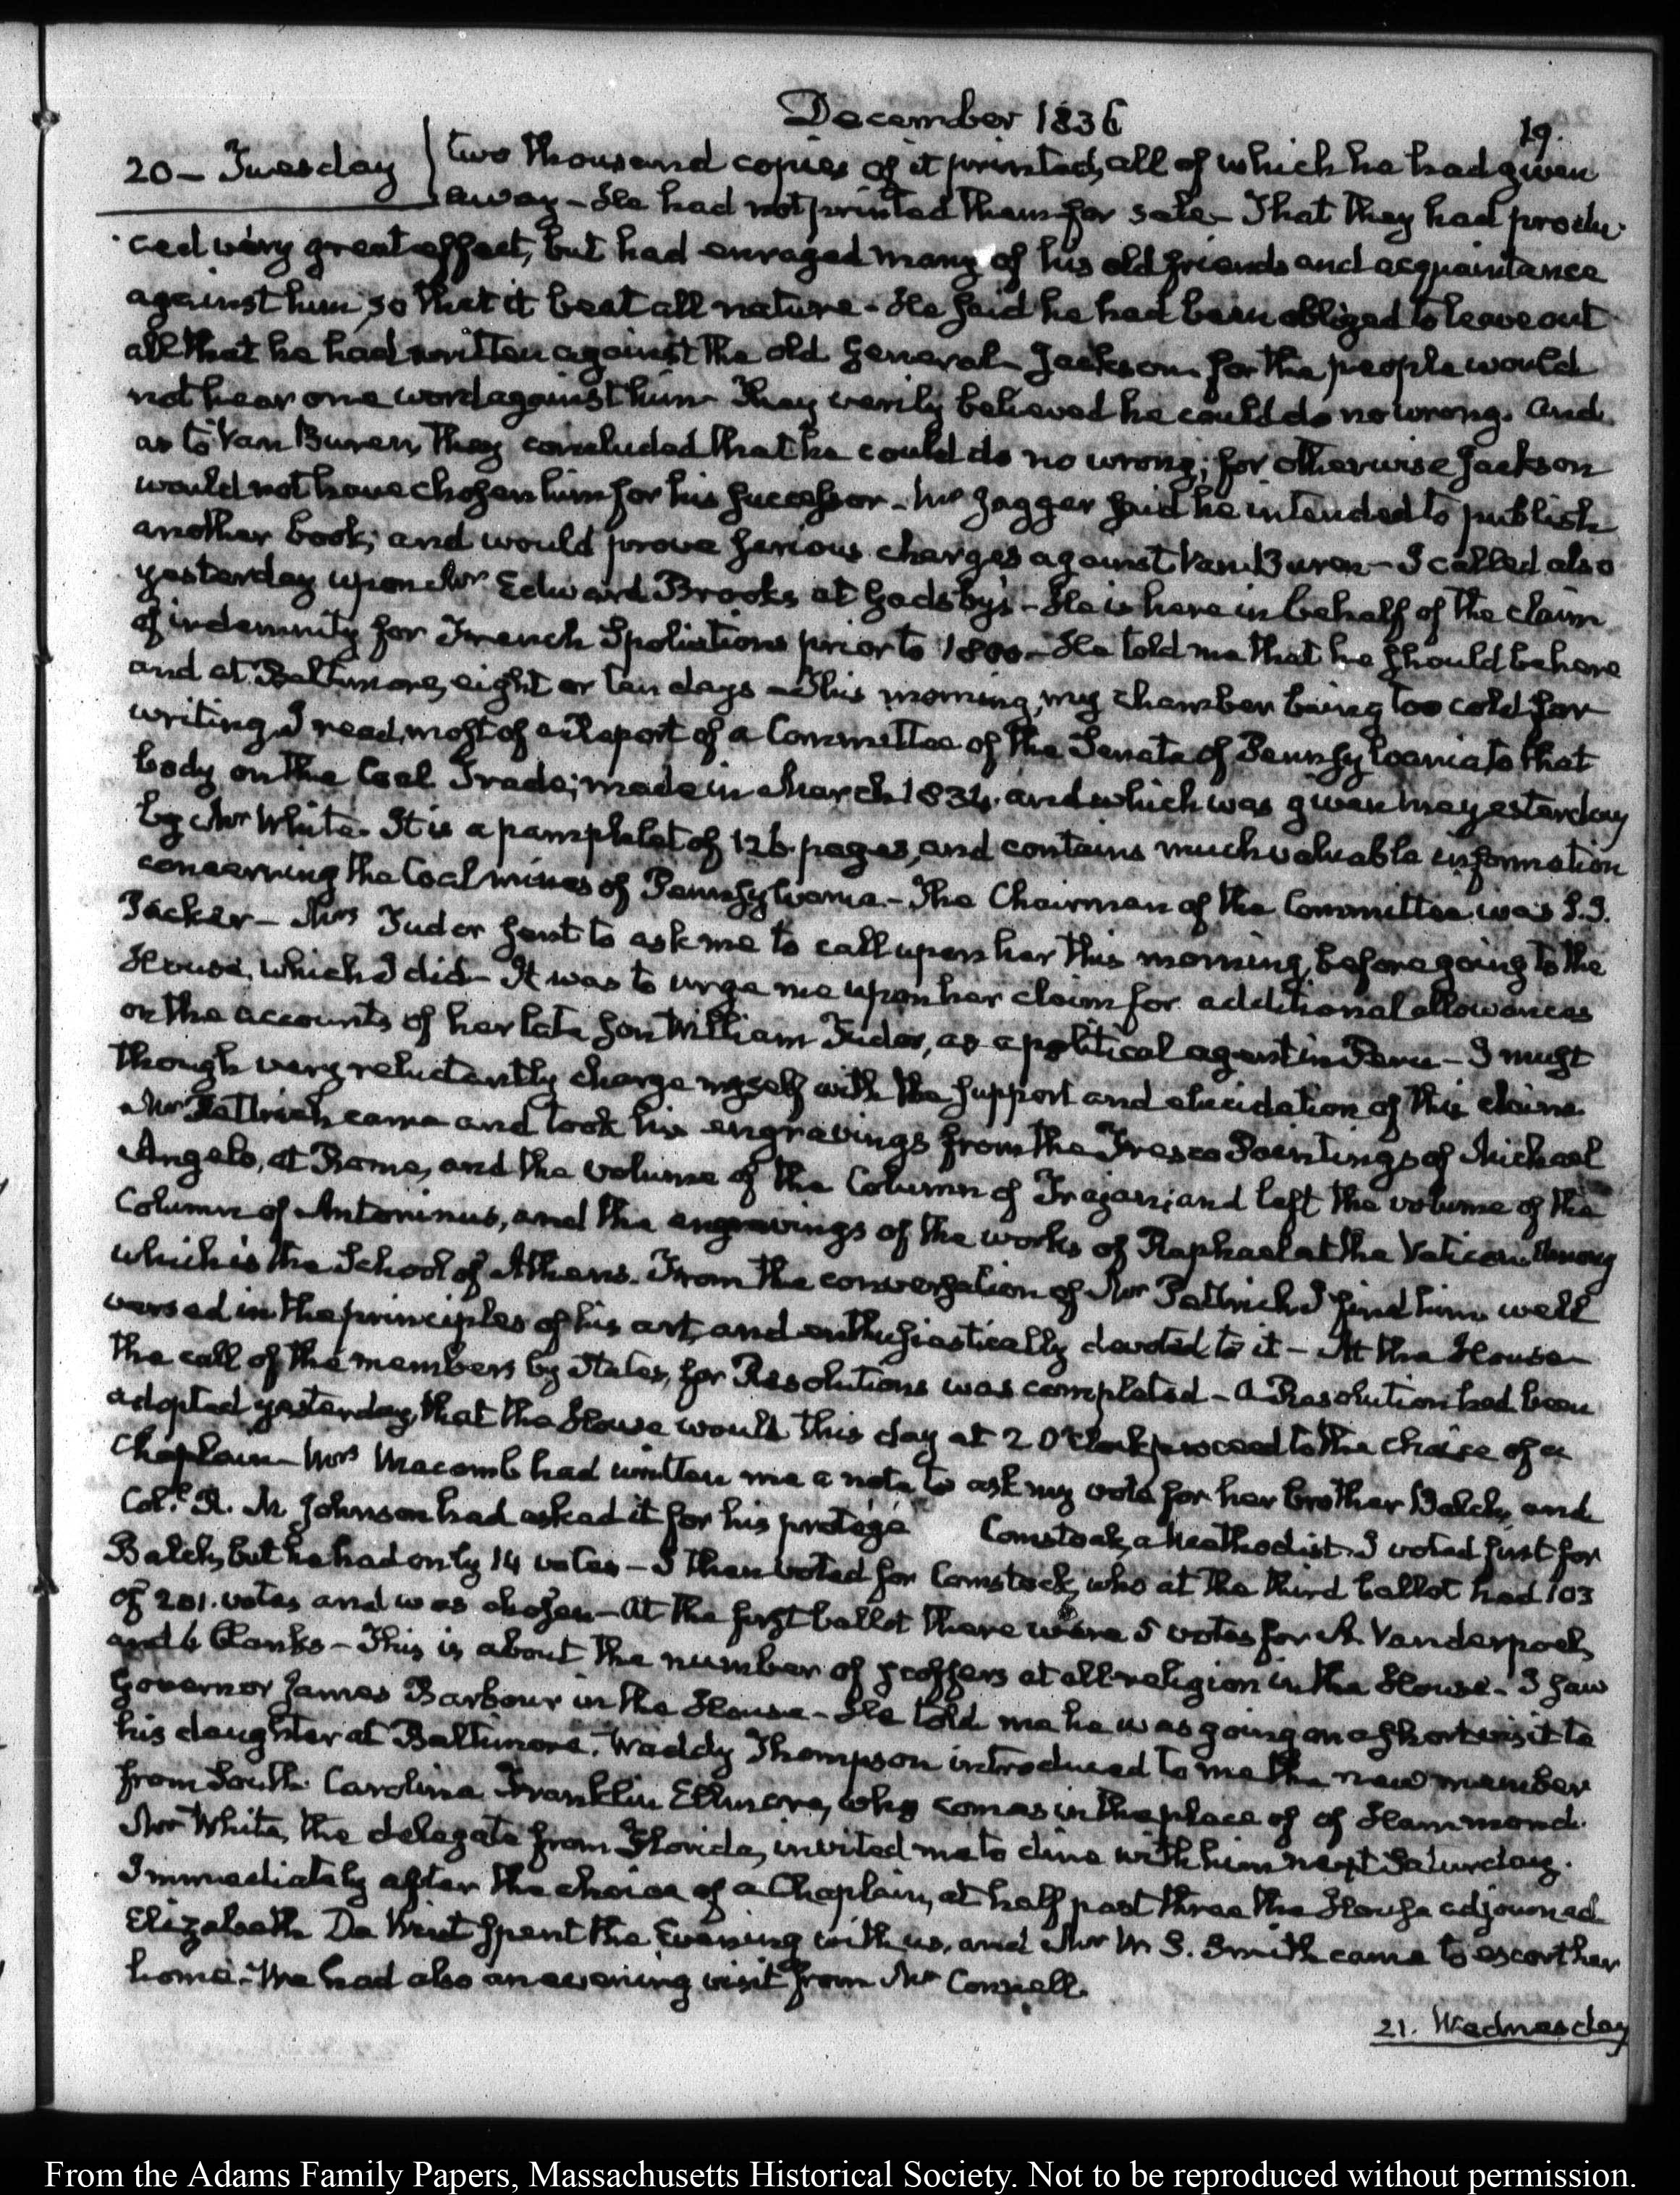 December 1836
19.
20 – Tuesday
two thousand copies of it printed, all of which he had given
away – He had not printed them for sale – That they had produ-
ced very great effect, but had enraged many of his old friends and acquaintance
against him, so that it beat all nature – He said he had been obliged to leave out
all that he had written against the old General Jackson for the people would
not hear one word against him They verily believed he could do no wrong. And
as to Van Buren, they concluded that he could do no wrong; for otherwise Jackson
would not have chosen him for his successor – Mr Jagger said he intended to publish
another book; and would prove serious charges against Van Buren – I called also
yesterday upon Mr Edward Brooks at Gadsby's – He is here in behalf of the claim
of indemnity for French Spoliations prior to 1800 – He told me that he should be here
and at Baltimore, eight or ten days – This morning, my chamber being too cold for
writing, I read most of a Report of a Committee of the Senate of Pennsylvania to that
body on the Coal Trade; made in March 1834. and which was given me yesterday
by Mr White. It is a pamphlet of 126 pages, and contains much valuable information
concerning the Coal mines of Pennsylvania – The Chairman of the Committee was S. J.
Packer – Mrs Tudor sent to ask me to call upon her this morning, before going to the
House, which I did – It was to urge me upon her claim for additional allowances
on the accounts of her late son William Tudor, as a political agent in Peru – I must
though very reluctantly charge myself with the support and elucidation of this claim.
Mr Pettrich came and took his engravings from the Fresco Paintings of Michael
Angelo, at Rome, and the volume of the Column of Trajan; and left the volume of the
Column of Antoninus, and the engravings of the works of Raphael at the Vatican Among
which is the School of Athens. From the conversation of Mr Pettrich I find him well
versed in the principles of his art, and enthusiastically devoted to it – At the House
the call of the members by States, for Resolutions was completed – A Resolution had been
adopted yesterday, that the House would this day at 2 O'Clock proceed to the choice of a
Chaplain – Mrs Macomb had written me a note to ask my vote for her brother Balch, and
Col. R. M. Johnson had asked it for his protégé Comstock, a Methodist. I voted first for
Balch, but he had only 14 votes – I then voted for Comstock, who at the third ballot had 103
of 201. votes and was chosen – At the first ballot there were 5 votes for A. Vanderpoel,
and 6 Blanks – This is about the number of scoffers at all religion in the House – I saw
Governor James Barbour in the House – He told me he was going on a short visit to
his daughter at Baltimore. Waddy Thompson introduced to me the new member
from South Carolina Franklin Elmore, who comes in the place of of Hammond.
Mr White, the delegate from Florida, invited me to dine with him next Saturday.
Immediately after the choice of a Chaplain, at half past three the House adjourned
Elizabeth De Wint spent the Evening with us, and Mr M S. Smith came to escort her
home. We had also an evening visit from Mr Connell.
21. Wednesday
From the Adams Family Papers, Massachusetts Historical Society. Not to be reproduced without permission.